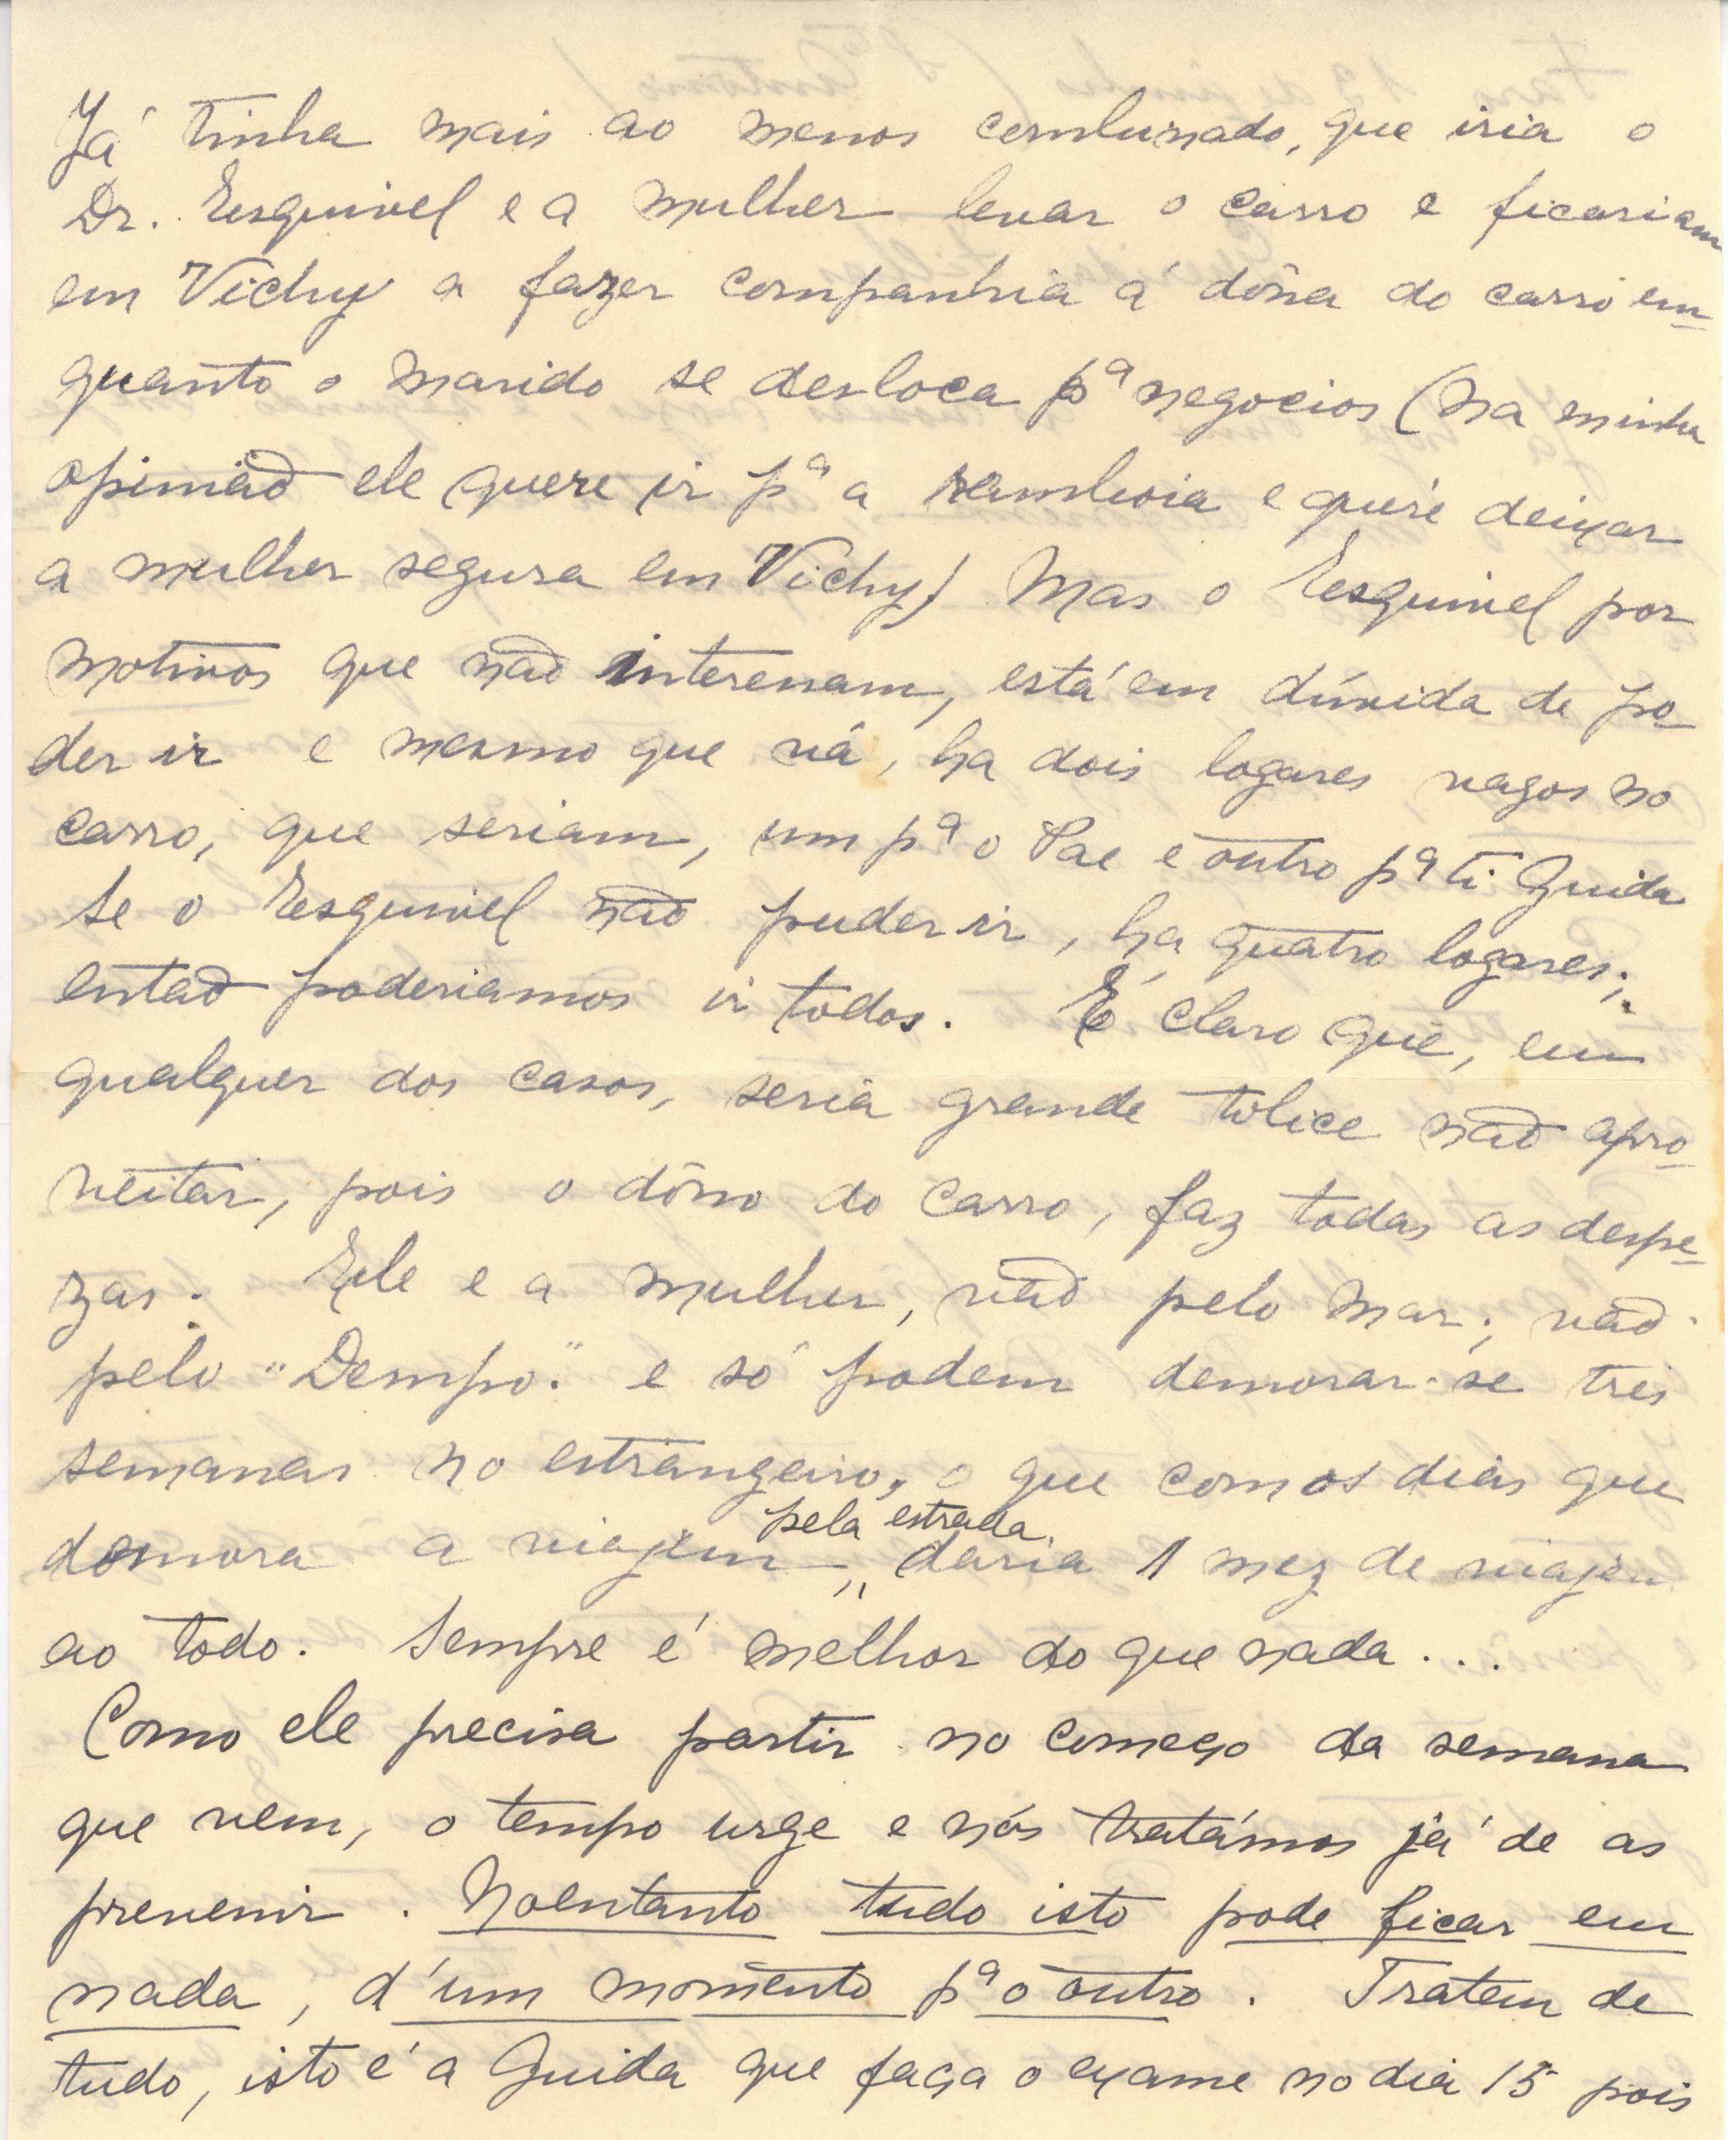 Já tinha mais ao menos combinado, que iria o
Dr. Esquivel e a mulher levar o carro e ficariam
em Vichy a fazer companhia á dôna do carro en-
quanto o marido se desloca pª negocios (na minha
opinião ele quere ir pª a ramboia e quere deixar
a mulher segura em Vichy) Mas o Esquivel por
motivos que não interessam, está em dúvida de po-
der ir e mesmo que vá, ha dois logares vagos no
carro, que seriam, um pª o Pae e outro pª ti Guida
Se o Esquivel não puder ir, ha quatro logares;
então poderiamos ir todos. É claro que, em
qualquer dos casos, seria grande tolice não apro-
veitar, pois o dôno do carro, faz todas as despe-
zas. Ele e a mulher, vão pelo mar; vão
pelo "Dempo" e só podem demorar-se tres
semanas no estrangeiro, o que com os dias que
demora a viajem pela estrada, daria 1 mez de viajem
ao todo. Sempre é melhor do que nada...
Como ele precisa partir no começo da semana
que vem, o tempo urge e nós tratámos já de as
prevenir. Noentanto tudo isto pode ficar em
nada, d'um momento pª o outro. Tratem de
tudo, isto é a Guida que faça o exame no dia 15 pois